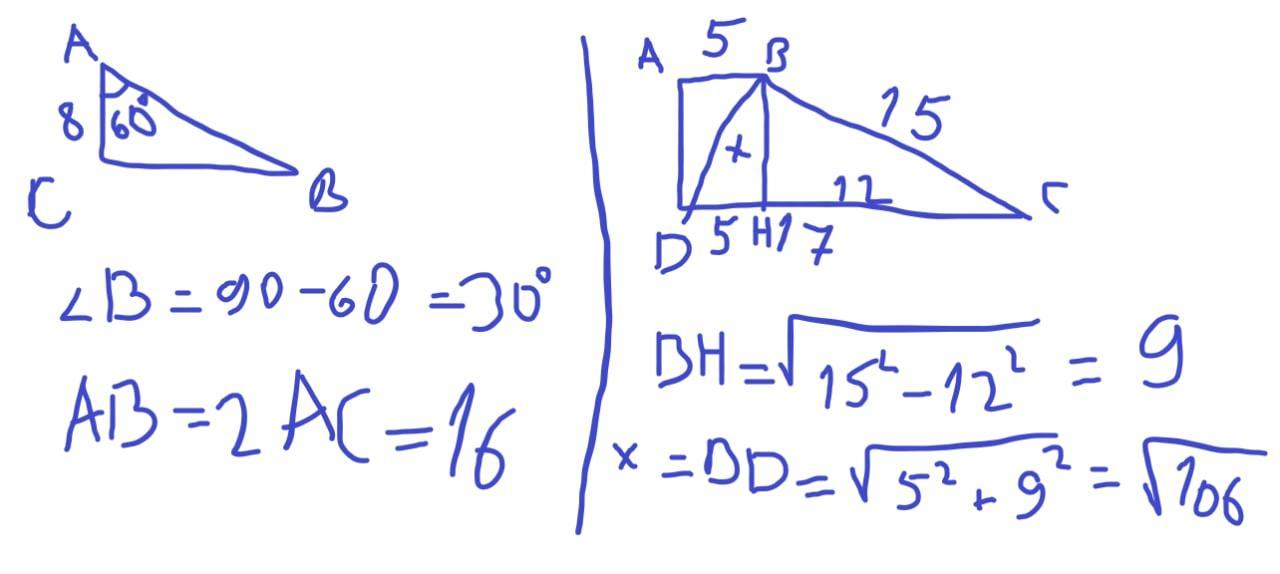 A
8 60°
C B
∠B = 90 - 60 = 30°
AB = 2 AC = 16
A 5 B
15
x
12 C
D 5 H 17
BH = √15² - 12² = 9
x = BD = √5² + 9² = √106